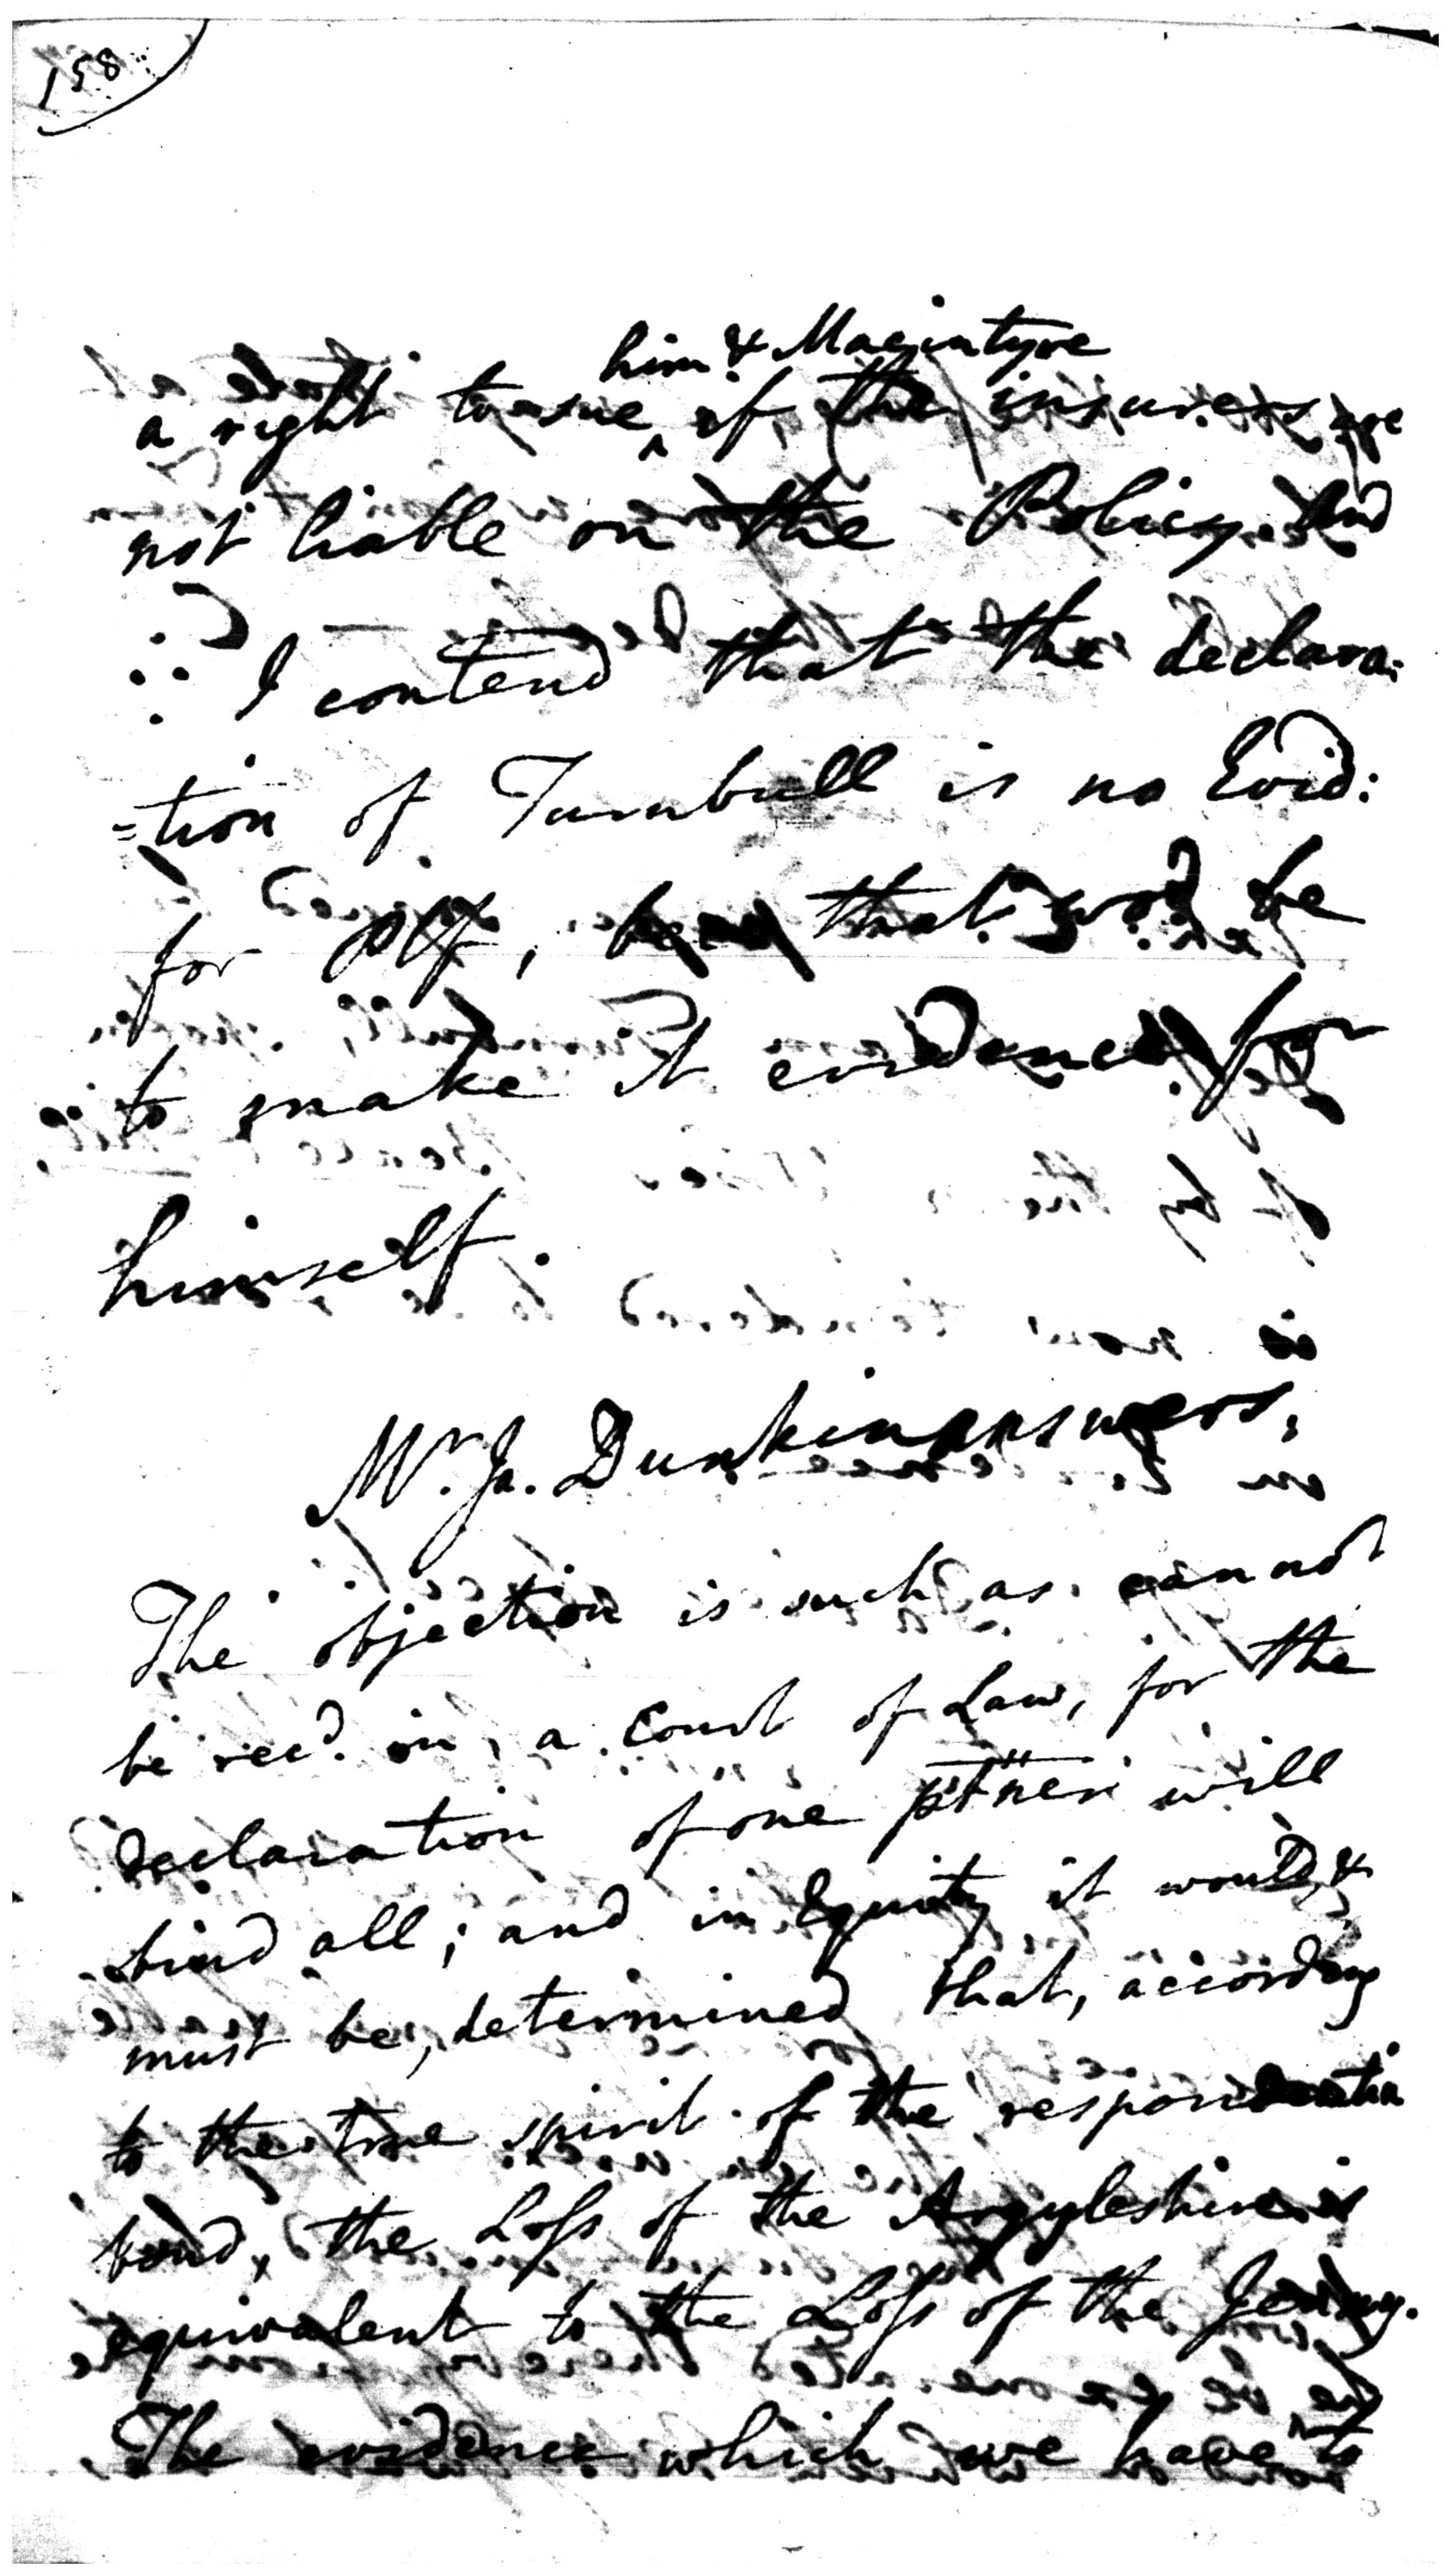 158
him & Macintyre
a right to sue ^ if the insurers are
not liable on the Policy. And
∴ I contend that the declara-
=tion of Turnbull is no Evid:
for Plf, that wod be
to make it evidence for
himself.
Mr. Ja. Dunkin answers,
The objection is such as cannot
be recd. in a Court of Law, for the
declaration of one ptner will
bind all; and in Equity it would, &
must be, determined that, according
to the true spirit of the respondentia
bond, the Loss of the Argyleshire is
equivalent to the Loss of the Jenny.
The evidence which we have to